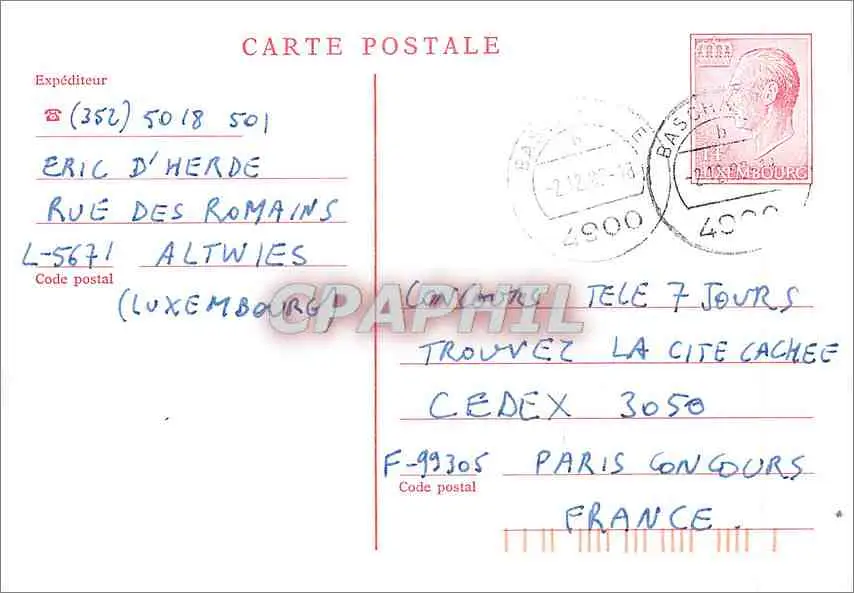 CARTE POSTALE
Expéditeur
☎ (352) 5018 501
ERIC D'HERDE
RUE DES ROMAINS
L-5671 ALTWIES
Code postal
(LUXEMBOURG)
CPAPHIL
14
LUXEMBOURG
b
-2.12.8
4900
BASCHA
b
CONCOURS TELE 7 JOURS
TROUVEZ LA CITE CACHEE
CEDEX 3050
F-99305 PARIS CONCOURS
Code postal
FRANCE.